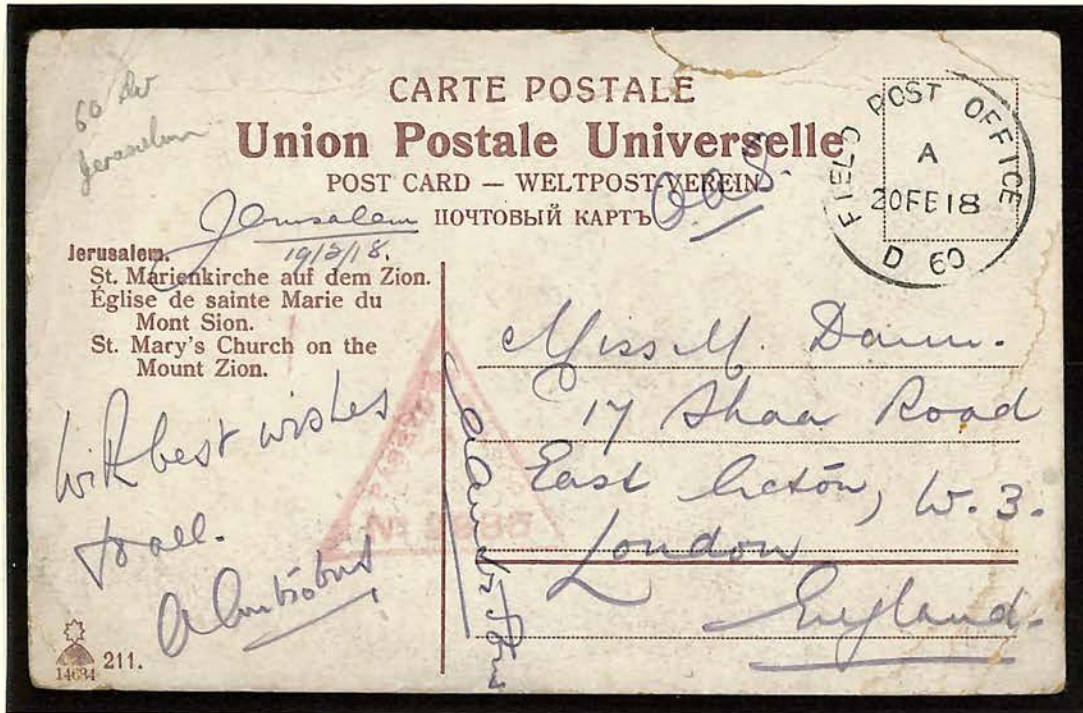 60 Div
Jerusalem
CARTE POSTALE
Union Postale Universelle
POST CARD — WELTPOST-VEREIN
ПОЧТОВЫЙ КАРТЪ
OAS.
FIELD POST OFFICE
A
20FE18
D 60
Jerusalem
19/2/18.
Jerusalem.
St. Marienkirche auf dem Zion.
Église de sainte Marie du
Mont Sion.
St. Mary's Church on the
Mount Zion.
With best wishes
to all.
Miss M.
17 Shaa Road
East Acton, W. 3.
London
England.
211.
14634